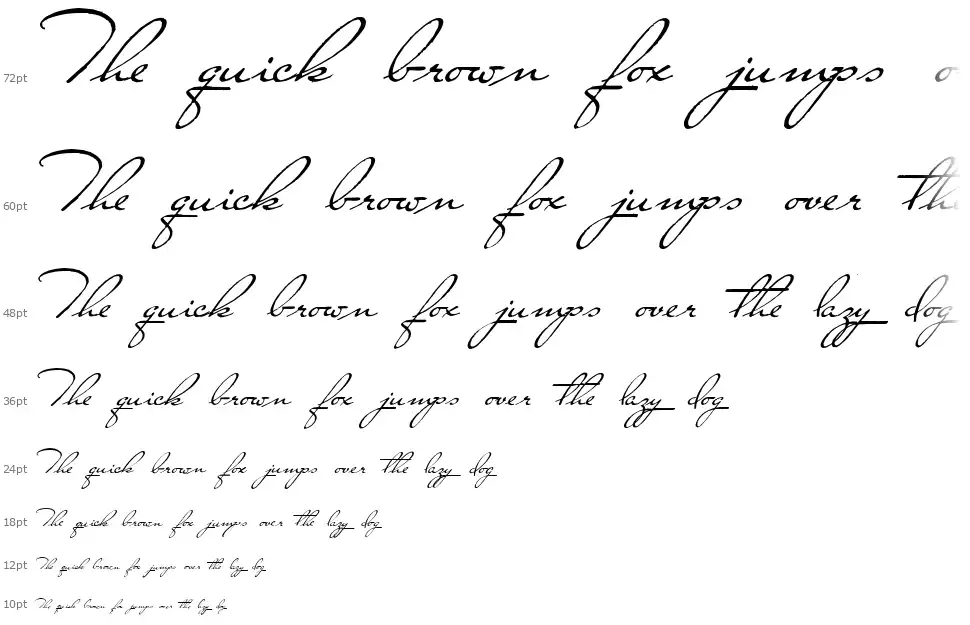 72pt The quick brown fox jumps o
60pt The quick brown fox jumps over the
48pt The quick brown fox jumps over the lazy dog
36pt The quick brown fox jumps over the lazy dog
24pt The quick brown fox jumps over the lazy dog
18pt The quick brown fox jumps over the lazy dog
12pt The quick brown fox jumps over the lazy dog
10pt The quick brown fox jumps over the lazy dog